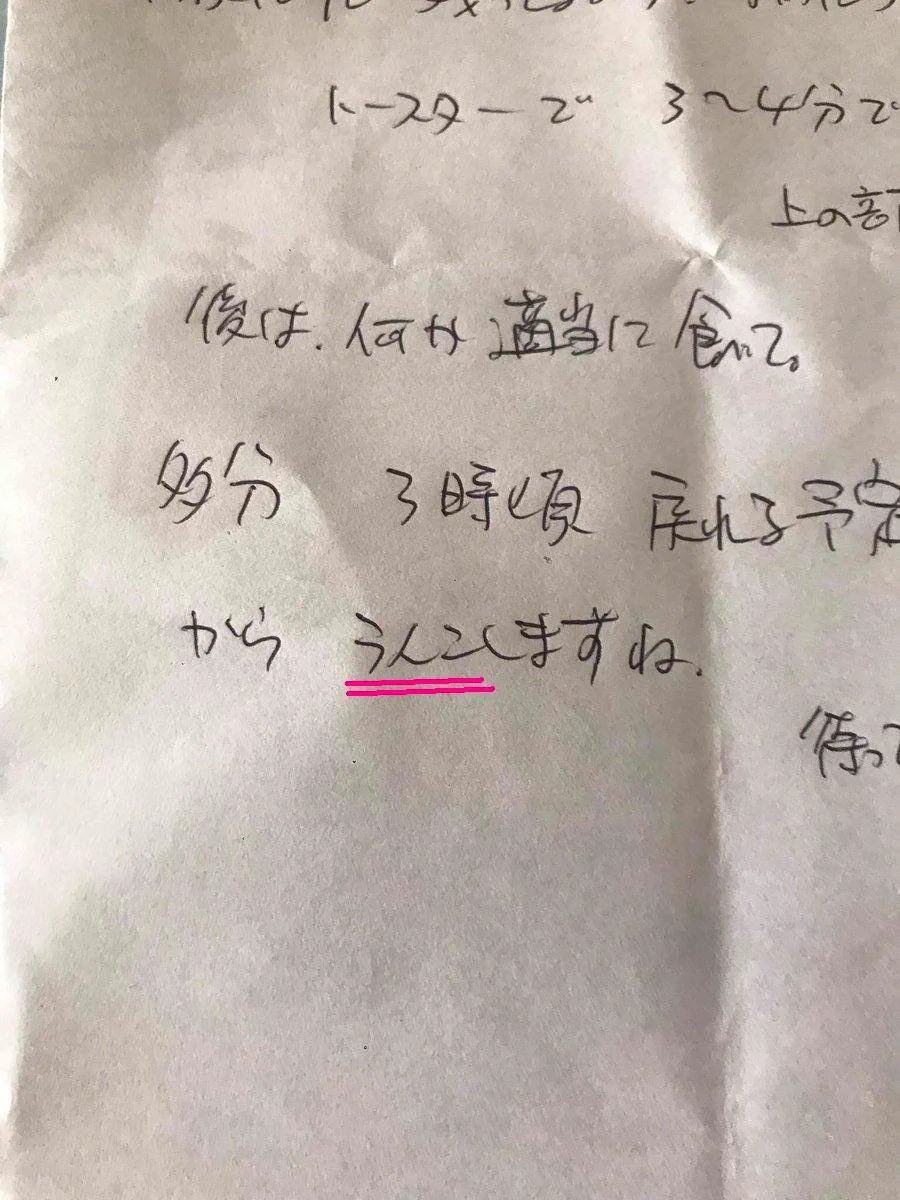 トースターで 3〜4分で
上の部
後は、何か適当に食べて。
多分 3時頃 戻れる予定
から うんこしますね.
待って